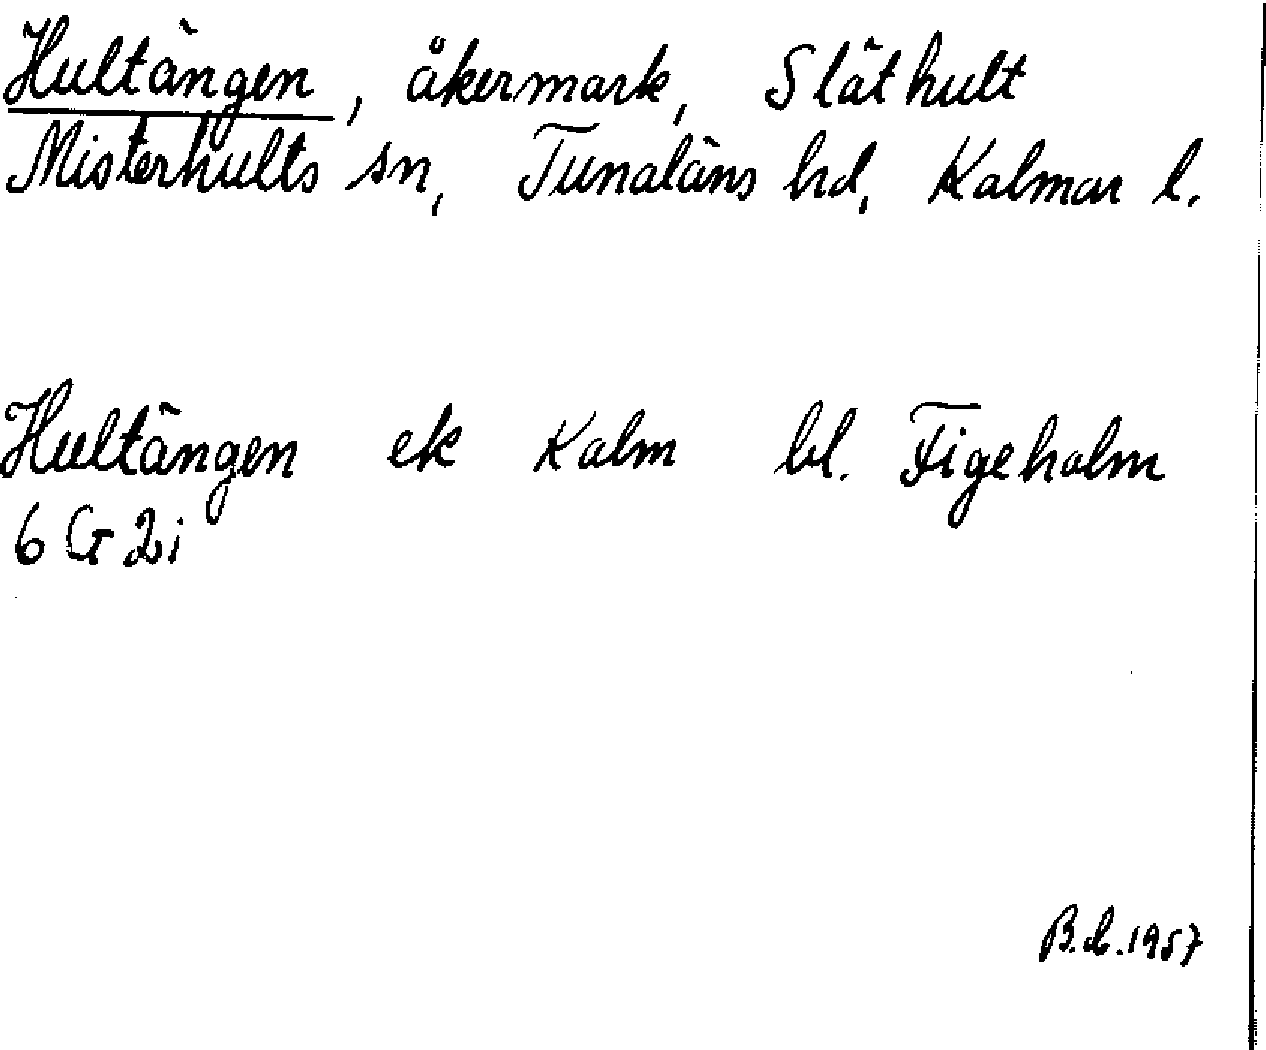 Hultängen, åkermark, Släthult
Misterhults sn, Tunaläns hd, Kalmar l.
Hultängen ek Kalm bl. Figeholm
6 G 2i
B.L. 1957